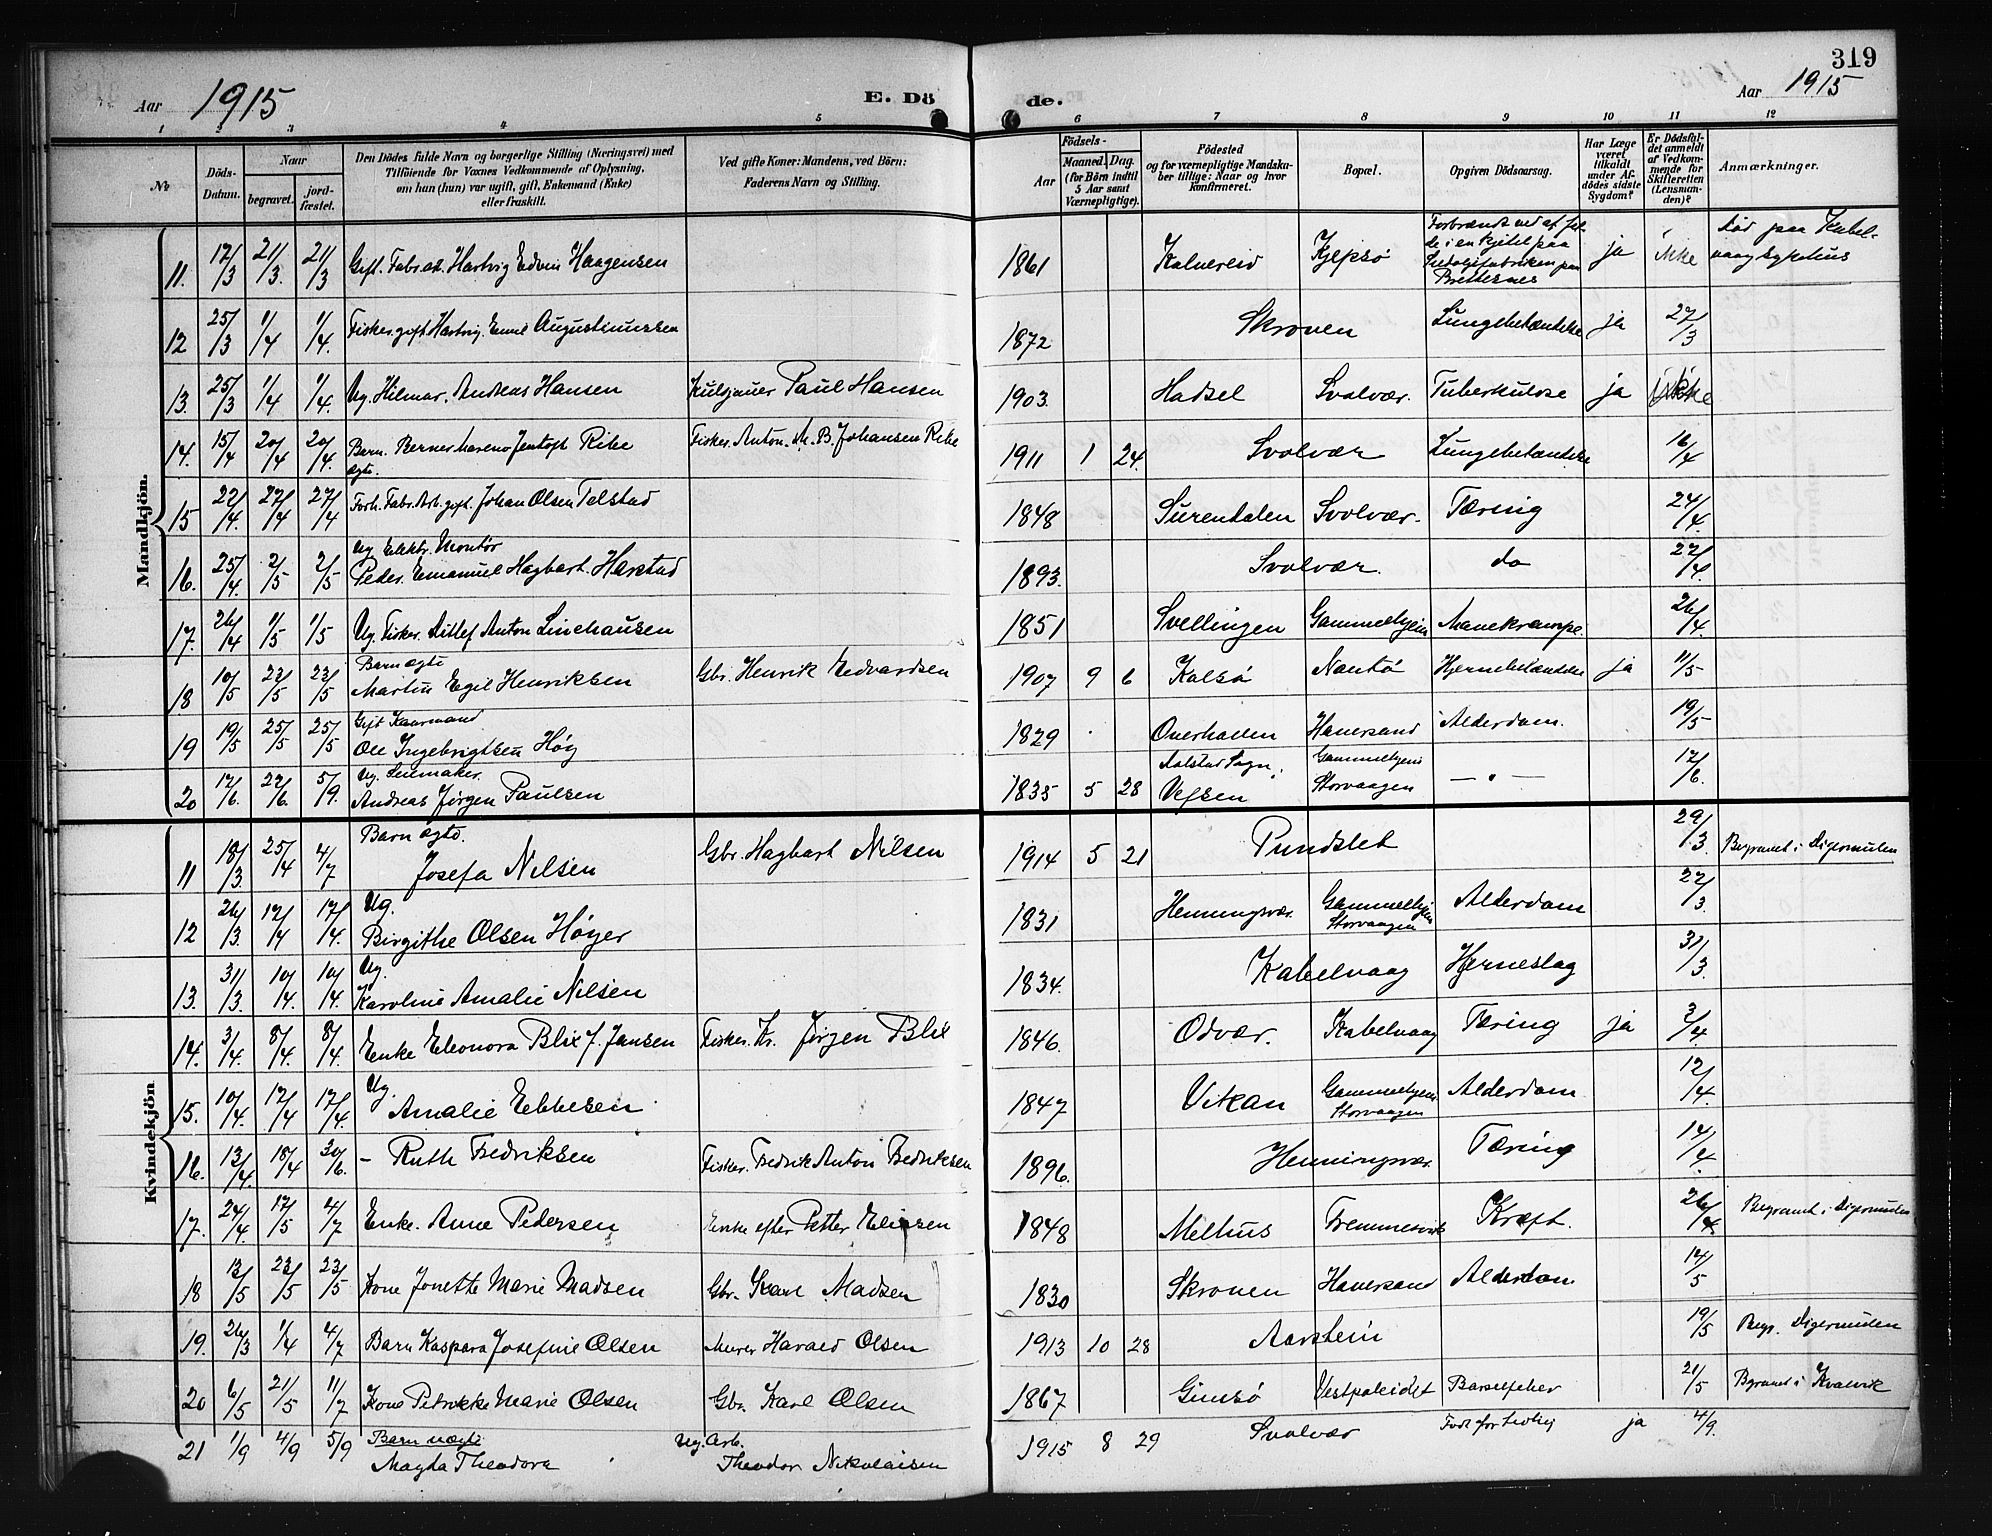 319
Aar 1915 E. Dö de. Aar 1915
1 2 3 4 5 6 7 8 9 10 11 12
No
Döds-Datum.
Naar
begravet.
jord-fæstet.
Den Dödes fulde Navn og borgerlige Stilling (Næringsvei) med
Tilföiende for Voxnes Vedkommende af Oplysning,
om han (hun) var ugift, gift, Enkemand (Enke)
eller fraskilt.
Ved gifte Koner: Mandens, ved Börn:
Faderens Navn og Stilling.
Födsels-
Aar
Maaned. Dag.
(for Börn indtil
5 Aar samt
Værnepligtige).
Födested
og for værnepligtige Mandska-
ber tillige: Naar og hvor
konfirmeret.
Bopæl.
Opgiven Dödsaarsag.
Har Læge
været
tilkaldt
under Af-
dödes sidste
Sygdom?
Er Dödsfal-
det anmeldt
af Vedkom-
mende for
Skifteretten
(Lensman-
den)?
Anmærkninger.
Mandkjön.
11. 17/3 21/3. 21/3 Gift. Fabr.arb. Hartvig Edvin Haagensen 1861 Kalvereid Kjepsø Forbrændt ved at fal-
de i en kjetel paa
Sildoljefabriken paa
Brettesnes ja ikke Død paa Kabel-
vaag sykehus
12 25/3 1/4 1/4. Fisker, gift. Hartvig Emil Augustinussen 1872 Skroven Lungebetændelse ja 27/3
13. 25/3 1/4 1/4. Ug. Hilmar. Andreas Hansen Kuldjauer Paul Hansen 1903. Hadsel Svolvær. Tuberkulose ja ikke
14. 15/4 20/4 20/4. Barn. Berner Mareno Jentoft Ribe
ægte. Fisker. Anton. M. B. Johansen Ribe 1911 1 24. Svolvær Lungebetændelse 16/4
15 22/4. 27/4 27/4 Forh. Fabr. Arb. gift. Johan Olsen Telstad 1848 Surendalen Svolvær. Tæring 24/4.
16. 25/4. 2/5 2/5 Ug. Elektr. Montør
Peder. Emanuel Hagbart. Harstad 1893. Svolvær. do 27/4.
17. 26/4 1/5 1/5 Ug. Fisker. Ditlef Anton Linehausen 1851 Svellingen Gammelhjem Mavekrampe. 26/4.
18 10/5 23/5 23/5 Barn ægte
Martin Egil Henriksen Gbr. Henrik Edvardsen 1907 9 6 Kalsø Nautø Hjernebetændelse ja 11/5
19 19/5 25/5 25/5 Gift Kaarmand
Ole Ingebrigtsen Høg 1829 Overhallen Haversand Alderdom. 19/5
20 12/6. 22/6 5/9. Ug. Seilmaker.
Andreas Jørgen Paulsen 1835 5 28 Alstad Sogn,
Vefsen Gammelhjem
Storvaagen — " — 12/6.
Kvindekjön
11 18/3 25/4 4/7 Barn ægte.
Josefa Nilsen Gbr. Hagbart Nilsen 1914 5 21 Pundslet 29/3. Begravet i Digermulen
12 26/3. 17/4 17/4. Ug.
Birgithe Olsen Høyer 1831 Henningsvær. Gammelhjem
Storvaagen Alderdom 27/3.
13. 31/3 10/4. 10/4. Ug.
Karoline Amalie Nilsen 1834. Kabelvaag Hjerneslag 31/3.
14. 3/4. 8/4 8/4 Enke Eleonora Blix f. Jansen Fisker. Kr. Jørgen Blix 1846. Odvær. Kabelvaag Tæring ja 3/4
15. 10/4. 17/4 17/4 Ug
Amalie Ebbesen 1847 Vikan Gammelhjem
Storvaagen Alderdom 12/4.
16. 13/4. 18/4 30/6. - Ruth Fredriksen Fisker. Fredrik Anton Fredriksen 1896. Henningsvær. Tæring 14/4.
17. 24/4. 17/5 4/7 Enke. Anne Pedersen Enke efter Petter Eliasen 1848 Melhus Fremmesvik Kræft. 26/4. Begravet i Digermulen
18 13/5 23/5 23/5 Kone Jonette Marie Madsen Gbr. Karl Madsen 1830 Skroven Haversand Alderdom 14/5
19. 26/3 1/4 4/7 Barn Kaspara Josefine Olsen Murer Harald Olsen 1913 10 28 Aarstein 19/5 Begr. Digermulen
20 6/5 21/5 11/7 Kone Petrikke Marie Olsen Gbr. Karl Olsen 1867 Gimsø Vestpoleidet Barselfeber 21/5 Begravet i Kvalvik
21 1/9 4/9 5/9 Barn uægte
Magda Theodora Ug. Arb.
Theodor Nikolaisen 1915 8 29 Svolvær Født for tidlig ja 4/9.